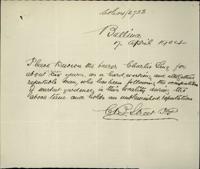 Ballina
17 April 1904
I have known the bearer Charlie Ling for
about five years, as a hard working and altogether
reputable man, who has been following the occupation
of market gardener in this locality during the
above time and holds an unblemished reputation